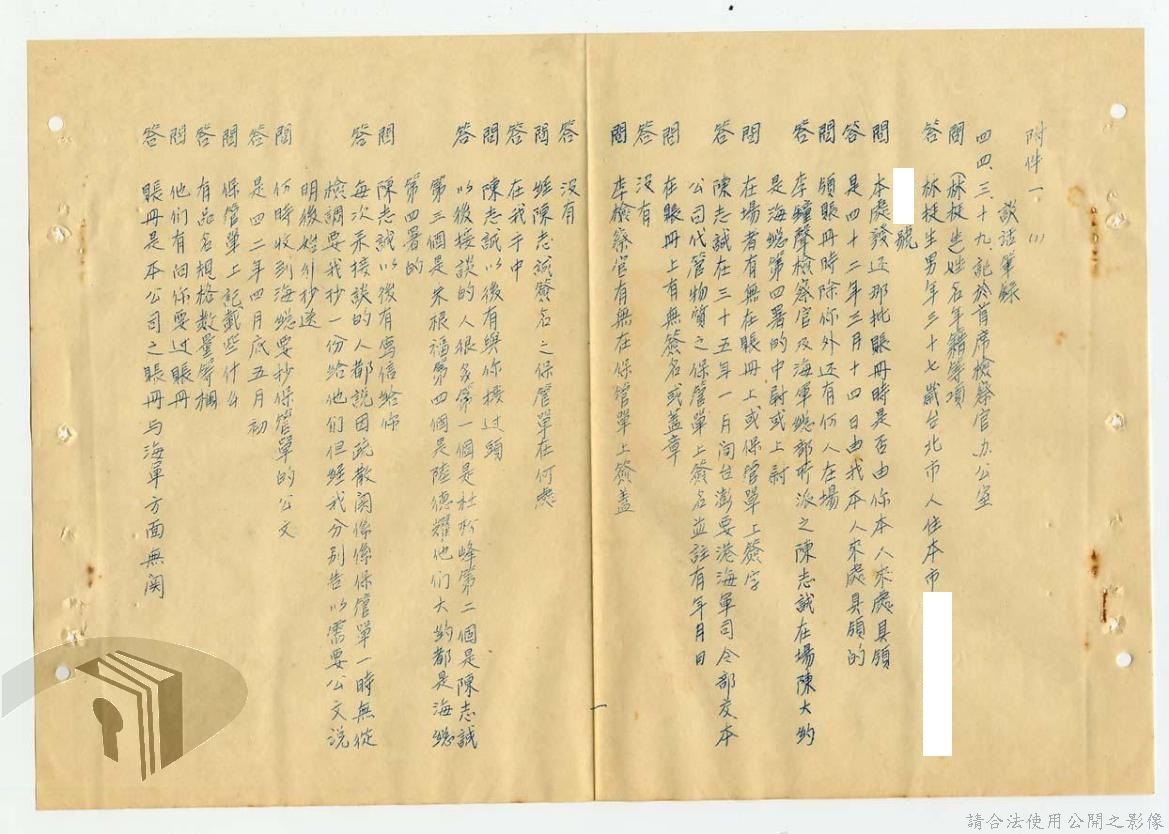 附件一、(1)
談話筆錄
四四、三、十九、記於首席檢察官办公室
問 (林杖生)姓名年籍等項
答 林杖生男年三十七歲台北市人住本市
號
問 本處發还那批賬冊時是否由你本人來處具領
答 是四十二年三月十四日由我本人來處具領的
問 領賬冊時除你外还有何人在場
答 李鐘聲檢察官及海軍總部所派之陳志誠在場陳大約
是海總第四署的中尉或上尉
問 在場者有無在賬冊上或保管單上簽字
答 陳志誠在三十五年一月间台澎要港海軍司令部交本
公司代管物質之保管單上簽名並註有年月日
問 在賬冊上有無簽名或蓋章
答 沒有
問 李檢察官有無在保管單上簽盖
答 沒有
問 經陳志誠簽名之保管單在何處
答 在我手中
問 陳志誠以後有與你接过頭
答 以後接談的人很多第一個是杜松峰第二個是陳志誠
第三個是朱根福第四個是陸德耀他们大約都是海總
第四署的
問 陳志誠以後有寫信給你
答 每次來接談的人都說因疏散関係係保管單一時無從
檢調要我抄一份給他们但經我分别告以需要公文說
明後始什抄送
問 份時收到海總要抄保管單的公文
答 是四二年四月底五月初
問 保管單上記載些什么
答 有品名規格数量等欄
問 他们有向你要过賬冊
答 賬冊是本公司之賬冊与海軍方面無関
一
請合法使用公開之影像